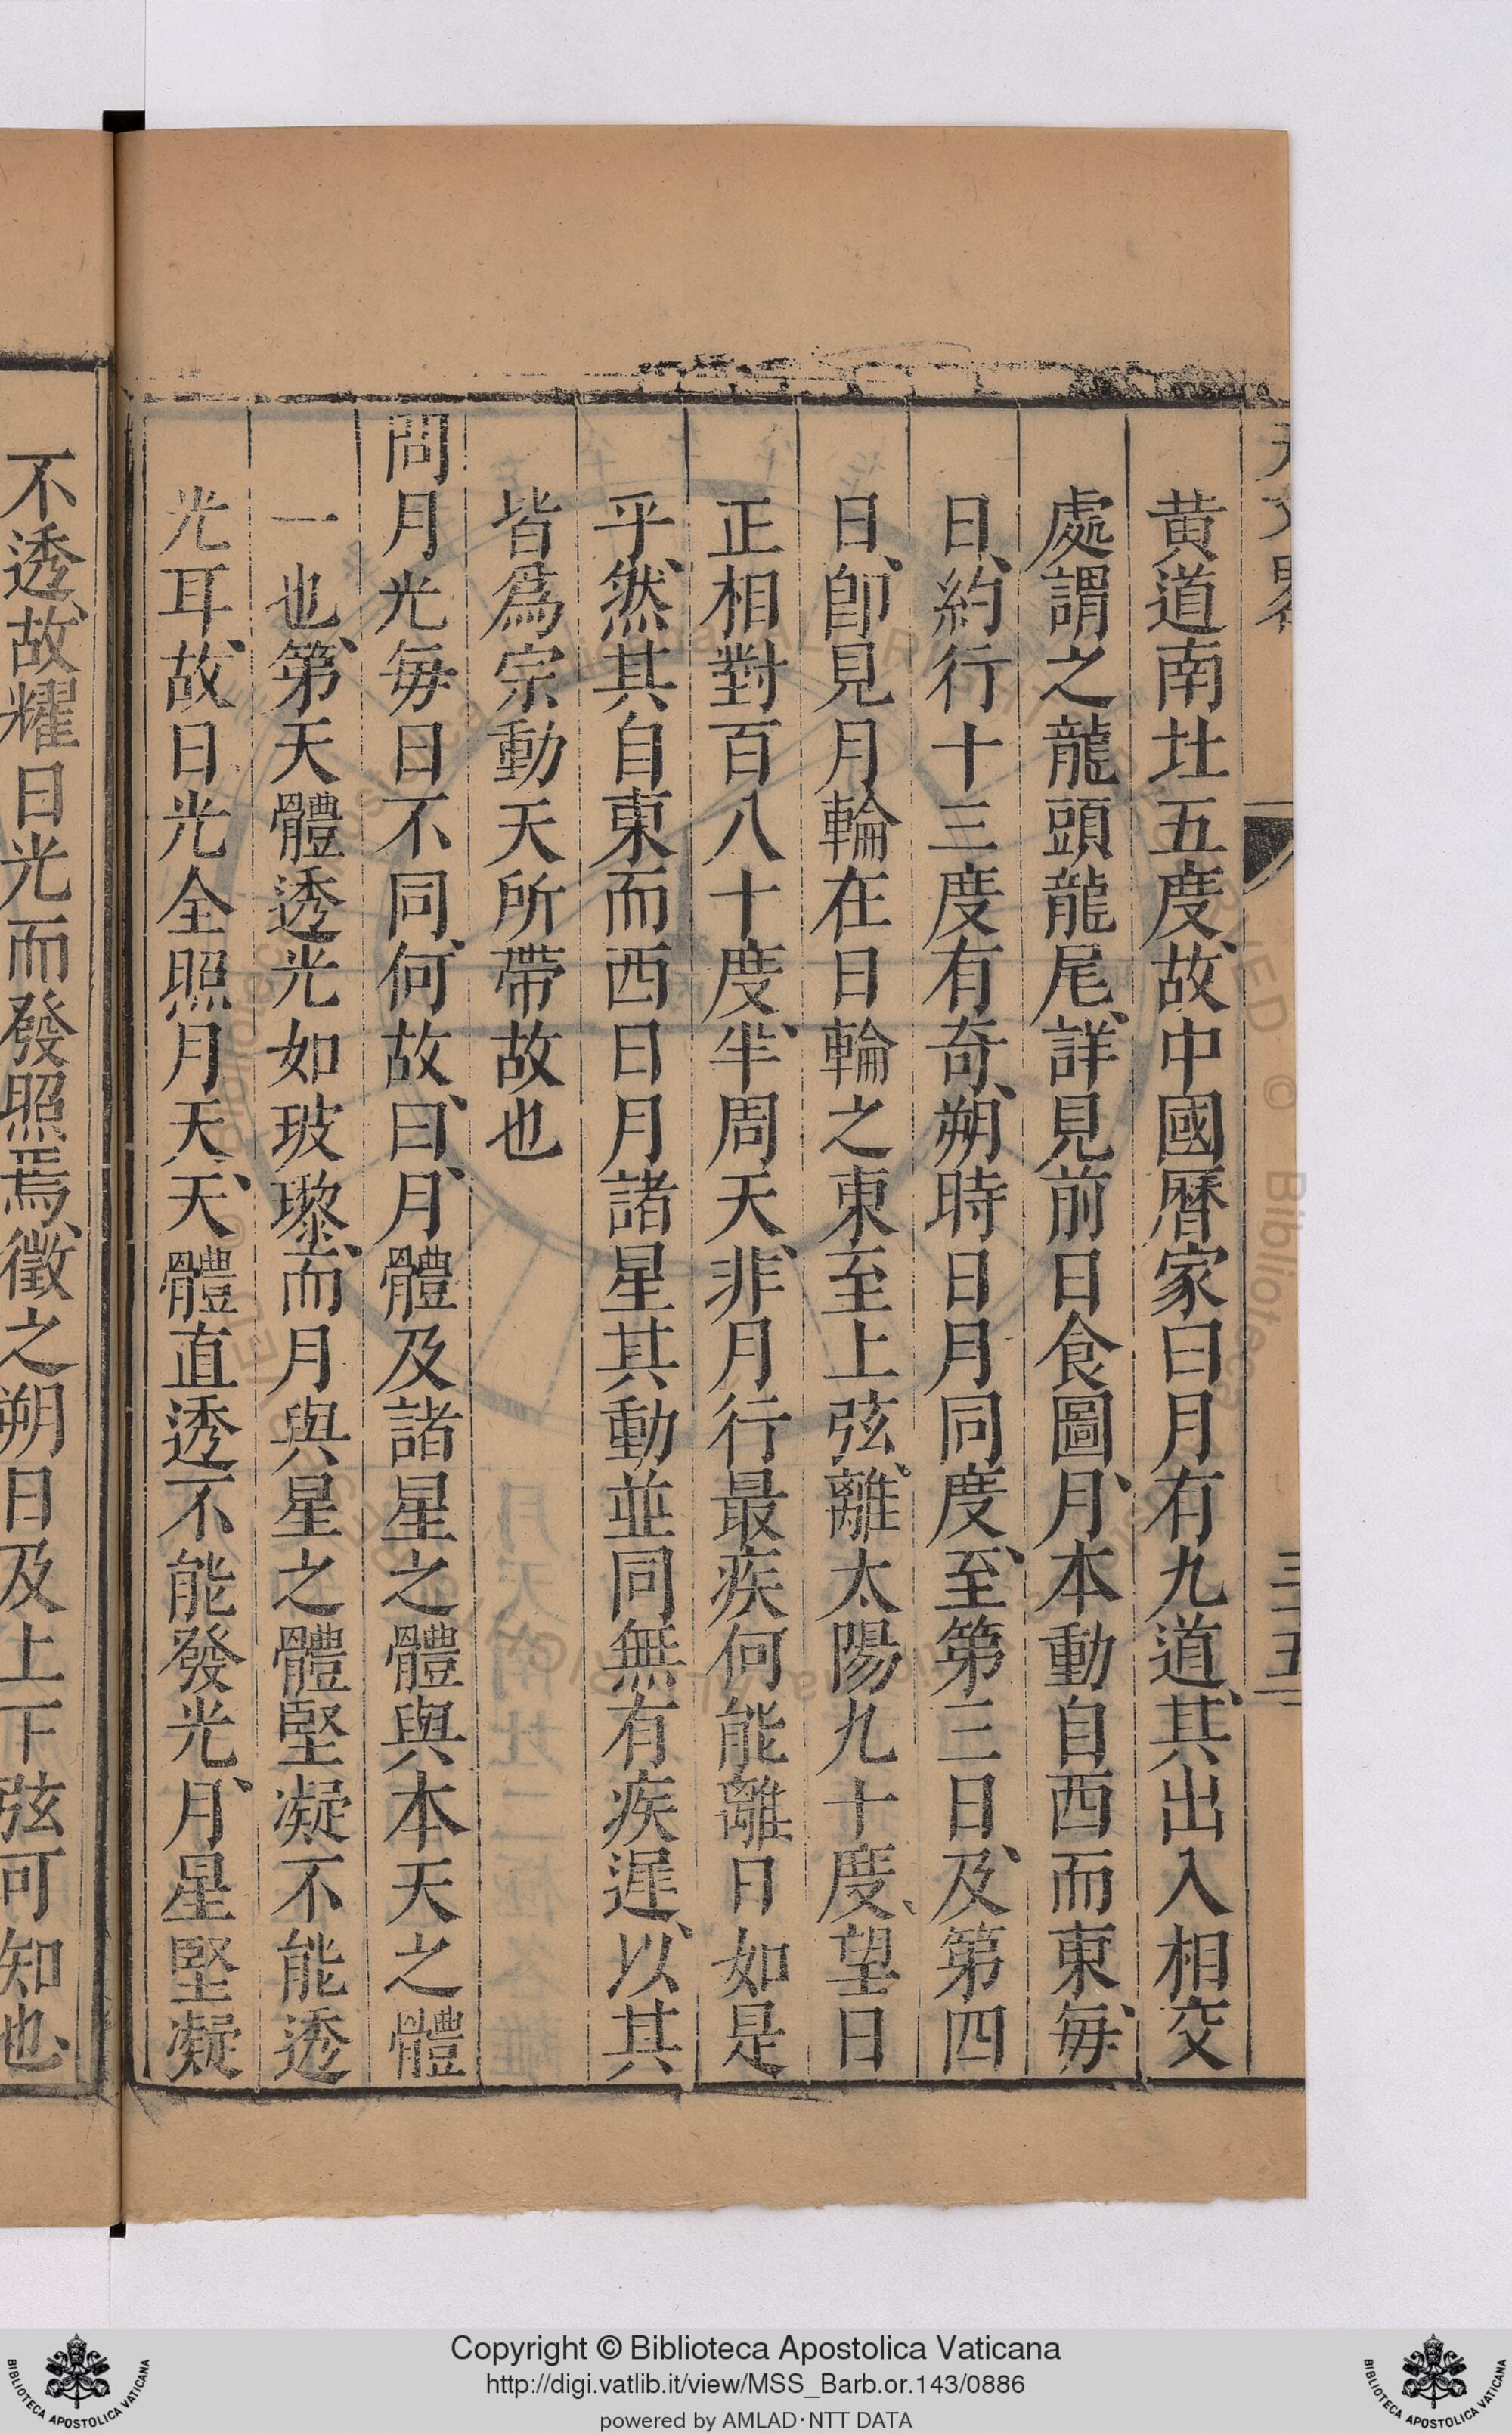 黄道南北五度、故中國曆家曰月有九道、其出入相交
處謂之龍頭龍尾、詳見前日食圖、月本動自西而東、每
日、約行十三度有奇、朔時日月同度、至第三日、及第四
日、卽見月輪在日輪之東至上弦、離太陽九十度、望日
正相對百八十度、半周天、非月行最疾何能離日如是
乎、然其自東而西日月諸星其動並同無有疾遲、以其
皆爲宗動天所帶故也
問月光每日不同、何故、曰、月體及諸星之體與本天之體
一也、第天體透光如玻瓈、而月與星之體堅凝不能透
光耳、故日光全照月天、天體直透不能發光、月星堅凝
不透、故耀日光而發照焉、徵之朔日及上下弦可知也、
Copyright © Biblioteca Apostolica Vaticana
http://digi.vatlib.it/view/MSS_Barb.or.143/0886
powered by AMLAD·NTT DATA
BIBLIOTECA APOSTOLICA VATICANA
BIBLIOTECA APOSTOLICA VATICANA